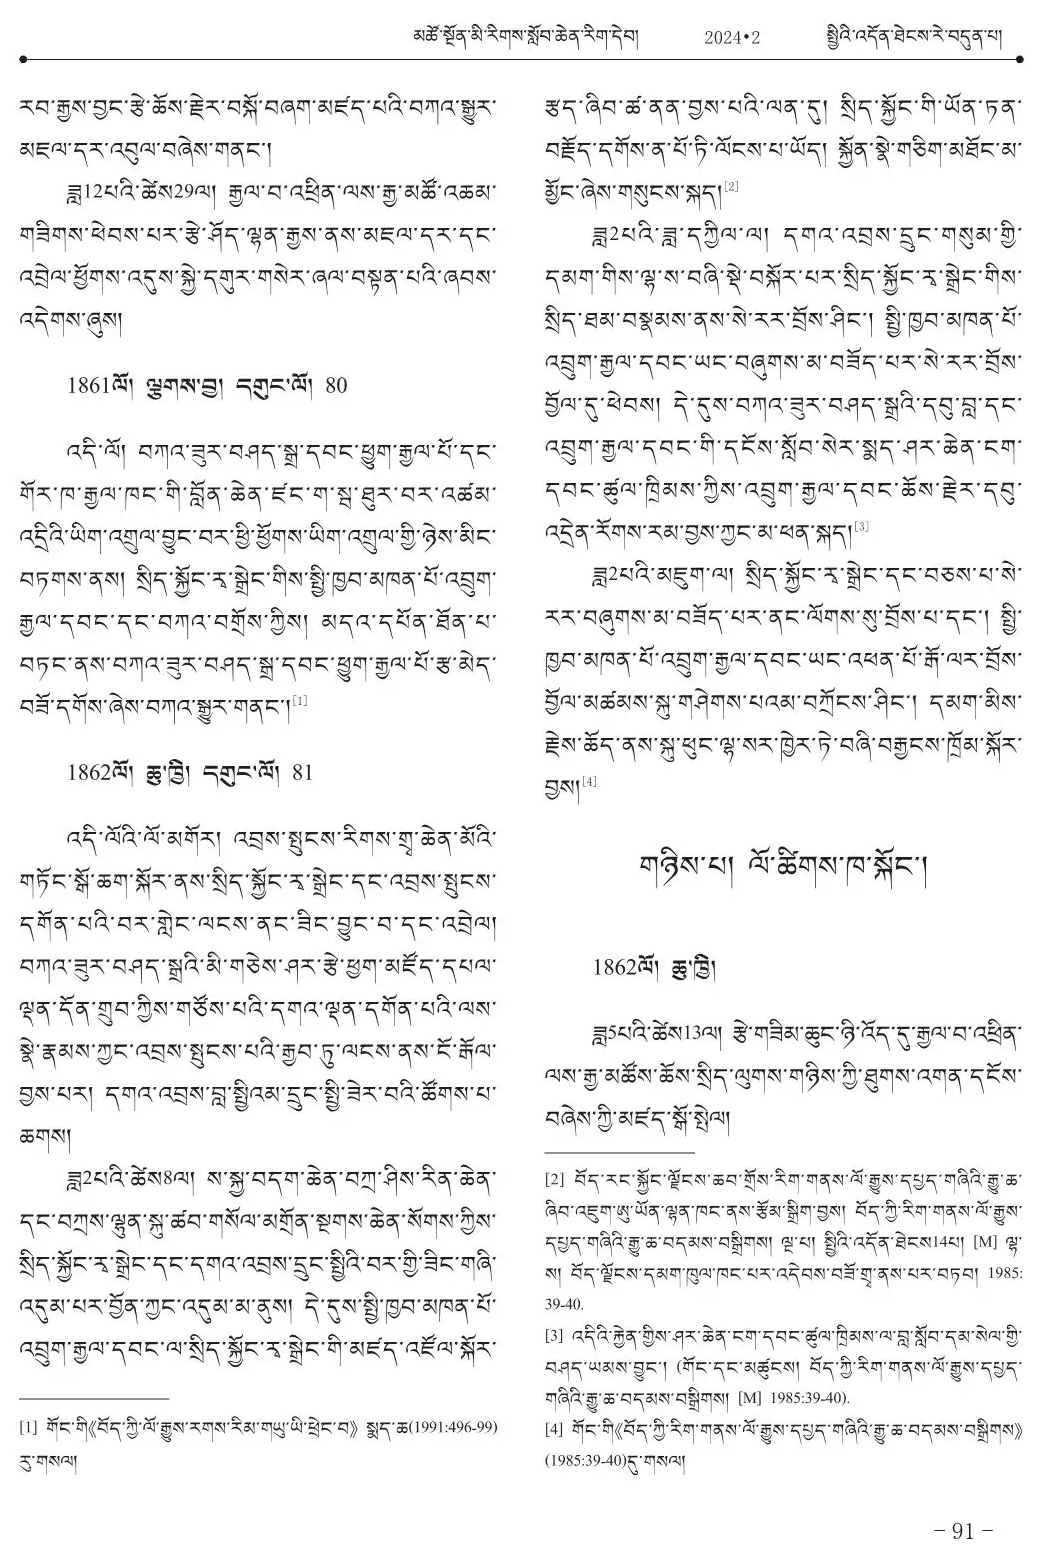 མཚོ་སྔོན་མི་རིགས་སློབ་ཆེན་རིག་དེབ།
2024•2
སྤྱིའི་འདོན་ཐེངས་རེ་བདུན་པ།
རབ་རྒྱས་བྱང་རྩེ་ཆོས་རྗེར་བསྐོ་བཞག་མཛད་པའི་བཀའ་སྒྱུར་
མཇལ་དར་འབུལ་བཞེས་གནང་།
ཟླ12པའི་ཚེས29ལ། རྒྱལ་བ་འཕྲིན་ལས་རྒྱ་མཚོ་འཆམ་
གཟིགས་ཕེབས་པར་རྩེ་ཤོད་ལྷན་རྒྱས་ནས་མཇལ་དར་དང་
འབྲེལ་ཕྱོགས་འདུས་སྐྱེ་དགུར་གསེར་ཞལ་བསྟན་པའི་ཞབས་
འདེགས་ཞུས།
1861ལོ། ལྕགས་བྱ། དགུང་ལོ། 80
འདི་ལོ། བཀའ་ཟུར་བཤད་སྒྲ་དབང་ཕྱུག་རྒྱལ་པོ་དང་
གོར་ཁ་རྒྱལ་ཁང་གི་བློན་ཆེན་ཛང་ག་སྦ་ཐུར་བར་འཚམ་
འདྲིའི་ཡིག་འགྲུལ་བྱུང་བར་ཕྱི་ཕྱོགས་ཡིག་འགྲུལ་གྱི་ཉེས་མིང་
བཏགས་ནས། སྲིད་སྐྱོང་རྭ་སྒྲེང་གིས་སྤྱི་ཁྱབ་མཁན་པོ་འབྲུག་
རྒྱལ་དབང་དང་བཀའ་བགྲོས་ཀྱིས། མདའ་དཔོན་ཐོན་པ་
བཏང་ནས་བཀའ་ཟུར་བཤད་སྒྲ་དབང་ཕྱུག་རྒྱལ་པོ་རྩ་མེད་
བཟོ་དགོས་ཞེས་བཀའ་སྒྱུར་གནང་།[1]
1862ལོ། ཆུ་ཁྱི། དགུང་ལོ། 81
འདི་ལོའི་ལོ་མགོར། འབྲས་སྤུངས་རིགས་གྲྭ་ཆེན་མོའི་
གཏོང་སྒོ་ཆག་སྐོར་ནས་སྲིད་སྐྱོང་རྭ་སྒྲེང་དང་འབྲས་སྤུངས་
དགོན་པའི་བར་གླེང་ལངས་ནང་ཟིང་བྱུང་བ་དང་འབྲེལ།
བཀའ་ཟུར་བཤད་སྒྲའི་མི་གཅེས་ཤར་རྩེ་ཕྱག་མཛོད་དཔལ་
ལྡན་དོན་གྲུབ་ཀྱིས་གཙོས་པའི་དགའ་ལྡན་དགོན་པའི་ལས་
སྣེ་རྣམས་ཀྱང་འབྲས་སྤུངས་པའི་རྒྱབ་ཏུ་ལངས་ནས་ངོ་རྒོལ་
བྱས་པར། དགའ་འབྲས་བླ་སྤྱིའམ་དྲུང་སྤྱི་ཟེར་བའི་ཚོགས་པ་
ཆགས།
ཟླ2པའི་ཚེས8ལ། ས་སྐྱ་བདག་ཆེན་བཀྲ་ཤིས་རིན་ཆེན་
དང་བཀྲས་ལྷུན་སྐུ་ཚབ་གསོལ་མགྲོན་སྔགས་ཆེན་སོགས་ཀྱིས་
སྲིད་སྐྱོང་རྭ་སྒྲེང་དང་དགའ་འབྲས་དྲུང་སྤྱིའི་བར་གྱི་ཟིང་གཞི་
འདུམ་པར་བྱོན་ཀྱང་འདུམ་མ་ནུས། དེ་དུས་སྤྱི་ཁྱབ་མཁན་པོ་
འབྲུག་རྒྱལ་དབང་ལ་སྲིད་སྐྱོང་རྭ་སྒྲེང་གི་མཛད་འཛོལ་སྐོར་
[1] གོང་གི《བོད་ཀྱི་ལོ་རྒྱུས་རགས་རིམ་གཡུ་ཡི་ཕྲེང་བ》 སྨད་ཆ(1991:496-99)
རུ་གསལ།
རྩད་ཞིབ་ཚ་ནན་བྱས་པའི་ལན་དུ། སྲིད་སྐྱོང་གི་ཡོན་ཏན་
བརྗོད་དགོས་ན་པོ་ཏི་ལོངས་པ་ཡོད། སྐྱོན་སྣེ་གཅིག་མཐོང་མ་
མྱོང་ཞེས་གསུངས་སྐད།[2]
ཟླ2པའི་ཟླ་དཀྱིལ་ལ། དགའ་འབྲས་དྲུང་གསུམ་གྱི་
དམག་གིས་ལྷ་ས་བཞི་སྡེ་བསྐོར་པར་སྲིད་སྐྱོང་རྭ་སྒྲེང་གིས་
སྲིད་ཐམ་བསྣམས་ནས་སེ་རར་བྲོས་ཤིང་། སྤྱི་ཁྱབ་མཁན་པོ་
འབྲུག་རྒྱལ་དབང་ཡང་བཞུགས་མ་བཟོད་པར་སེ་རར་བྲོས་
བྱོལ་དུ་ཕེབས། དེ་དུས་བཀའ་ཟུར་བཤད་སྒྲའི་དབུ་བླ་དང་
འབྲུག་རྒྱལ་དབང་གི་དངོས་སློབ་སེར་སྨད་ཤར་ཆེན་ངག་
དབང་ཚུལ་ཁྲིམས་ཀྱིས་འབྲུག་རྒྱལ་དབང་ཆོས་རྗེར་དབུ་
འདྲེན་རོགས་རམ་བྱས་ཀྱང་མ་ཕན་སྐད།[3]
ཟླ2པའི་མཇུག་ལ། སྲིད་སྐྱོང་རྭ་སྒྲེང་དང་བཅས་པ་སེ་
རར་བཞུགས་མ་བཟོད་པར་ནང་ལོགས་སུ་བྲོས་པ་དང་། སྤྱི་
ཁྱབ་མཁན་པོ་འབྲུག་རྒྱལ་དབང་ཡང་འཕན་པོ་རྒོ་ལར་བྲོས་
བྱོལ་མཚམས་སྐུ་གཤེགས་པའམ་བཀྲོངས་ཤིང་། དམག་མིས་
རྗེས་ཆོད་ནས་སྐུ་ཕུང་ལྷ་སར་ཁྱེར་ཏེ་བཞི་བརྒྱངས་ཁྲོམ་སྐོར་
བྱས།[4]
གཉིས་པ། ལོ་ཚིགས་ཁ་སྐོང་།
1862ལོ། ཆུ་ཁྱི།
ཟླ5པའི་ཚེས13ལ། རྩེ་གཟིམ་ཆུང་ཉི་འོད་དུ་རྒྱལ་བ་འཕྲིན་
ལས་རྒྱ་མཚོས་ཆོས་སྲིད་ལུགས་གཉིས་ཀྱི་ཐུགས་འགན་དངོས་
བཞེས་ཀྱི་མཛད་སྒོ་སྤེལ།
[2] བོད་རང་སྐྱོང་ལྗོངས་ཆབ་གྲོས་རིག་གནས་ལོ་རྒྱུས་དཔྱད་གཞིའི་རྒྱུ་ཆ་
ཞིབ་འཇུག་ཨུ་ཡོན་ལྷན་ཁང་ནས་རྩོམ་སྒྲིག་བྱས། བོད་ཀྱི་རིག་གནས་ལོ་རྒྱུས་
དཔྱད་གཞིའི་རྒྱུ་ཆ་བདམས་བསྒྲིགས། ལྔ་པ། སྤྱིའི་འདོན་ཐེངས14པ། [M] ལྷ་
ས། བོད་ལྗོངས་དམག་ཁུལ་ཁང་པར་འདེབས་བཟོ་གྲྭ་ནས་པར་བཏབ། 1985:
39-40.
[3] འདིའི་རྐྱེན་གྱིས་ཤར་ཆེན་ངག་དབང་ཚུལ་ཁྲིམས་ལ་བླ་སློབ་དམ་སེལ་གྱི་
བཤད་ཡམས་བྱུང་། (གོང་དང་མཚུངས། བོད་ཀྱི་རིག་གནས་ལོ་རྒྱུས་དཔྱད་
གཞིའི་རྒྱུ་ཆ་བདམས་བསྒྲིགས། [M] 1985:39-40).
[4] གོང་གི《བོད་ཀྱི་རིག་གནས་ལོ་རྒྱུས་དཔྱད་གཞིའི་རྒྱུ་ཆ་བདམས་བསྒྲིགས》
(1985:39-40)དུ་གསལ།
– 91 –